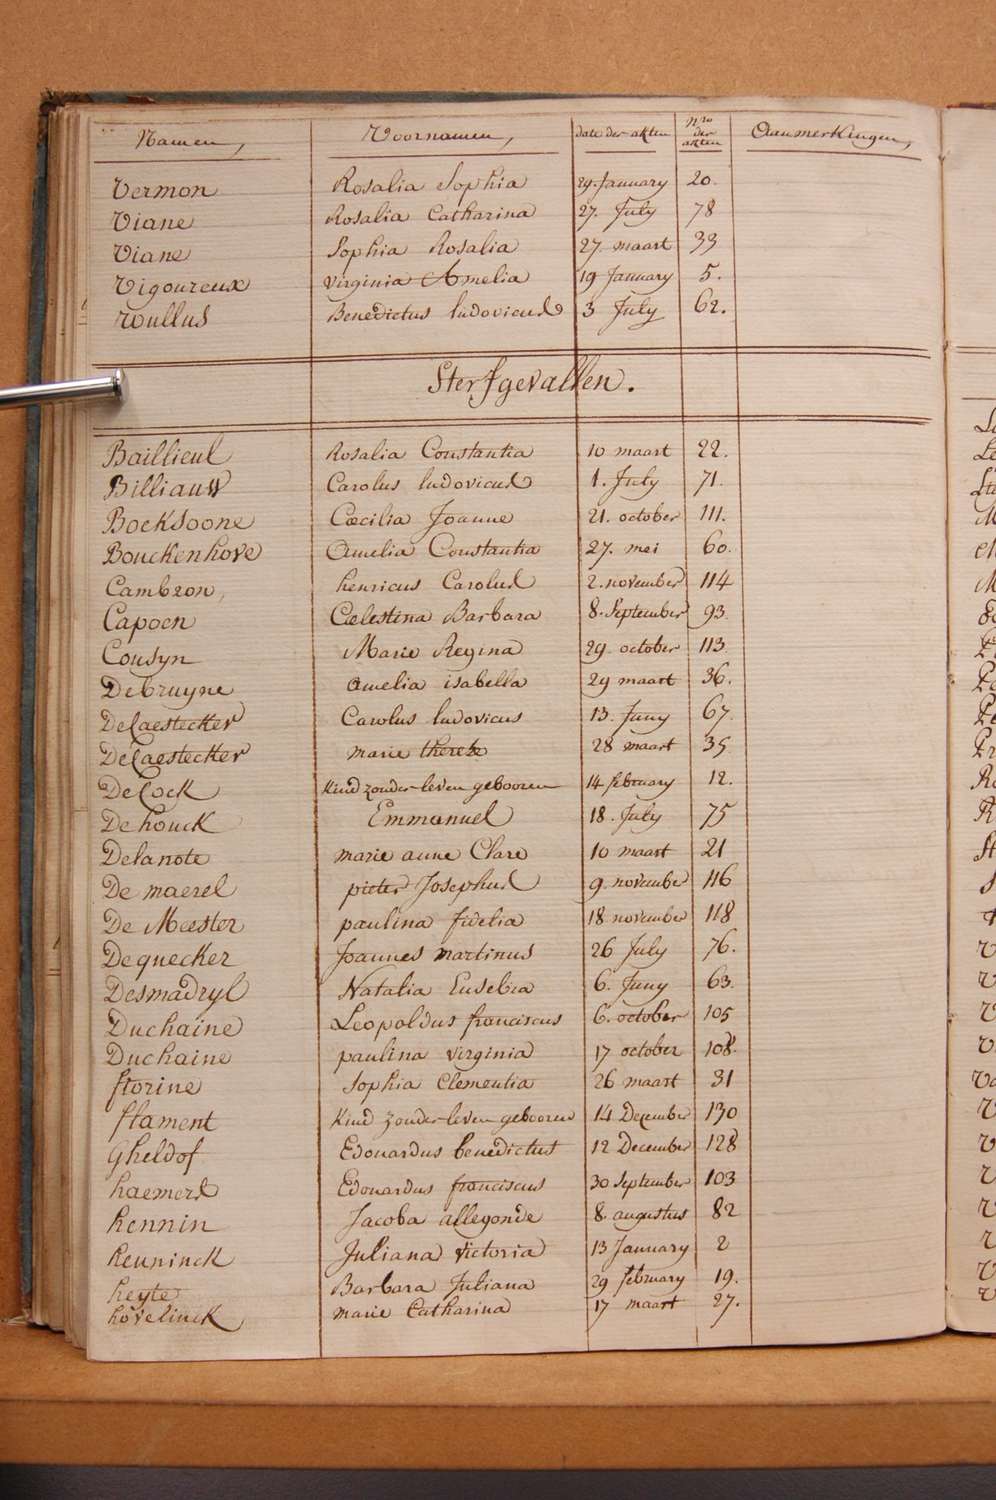 Namen, Voornamen, date der akten Nro der akten Aanmerkingen,
Vermon Rosalia Sophia 29. January 20.
Viane Rosalia Catharina 27. July 78
Viane Sophia Rosalia 27 maart 33
Vigoureux Virginia Amelia 19 January 5.
Wullus Benedictus ludovicus 3 July 62.
Sterfgevallen.
Baillieul Rosalia Constantia 10 maart 22.
Billiauw Carolus ludovicus 1. July 71.
Boeksoone Cœcilia Joanne 21. october 111.
Bouckenhove Amelia Constantia 27. mei 60.
Cambron, henricus Carolus 2. november 114
Capoen Cœlestina Barbara 8. September 93.
Cousyn Marie Regina 29. october 113.
Debruyne Amelia isabella 29 maart 36.
DeCaestecker Carolus ludovicus 13. Juny 67.
DeCaestecker marie thereze 28 maart 35
DeCock Kind zonder leven gebooren 14 february 12.
Dehouck Emmanuel 18. July 75
Delanote marie anne Clare 10 maart 21
De maerel pieter Josephus 9. november 116
De Meester paulina fidelia 18 november 118
Dequecker Joannes martinus 26 July 76.
Desmadryl Natalia Eusebia 6. Juny 63.
Duchaine Leopoldus franciscus 6. october 105
Duchaine paulina virginia 17 october 108.
florine Sophia Clementia 26 maart 31
flament Kind zonder leven gebooren 14 December 130
Gheldof Edouardus benedictus 12 December 128
haemers Edouardus franciscus 30 September 103
hennin Jacoba allegonde 8. augustus 82
heuninck Juliana Victoria 13 January 2
heyte Barbara Juliana 29 february 19.
hovelinck marie Catharina 17 maart 27.